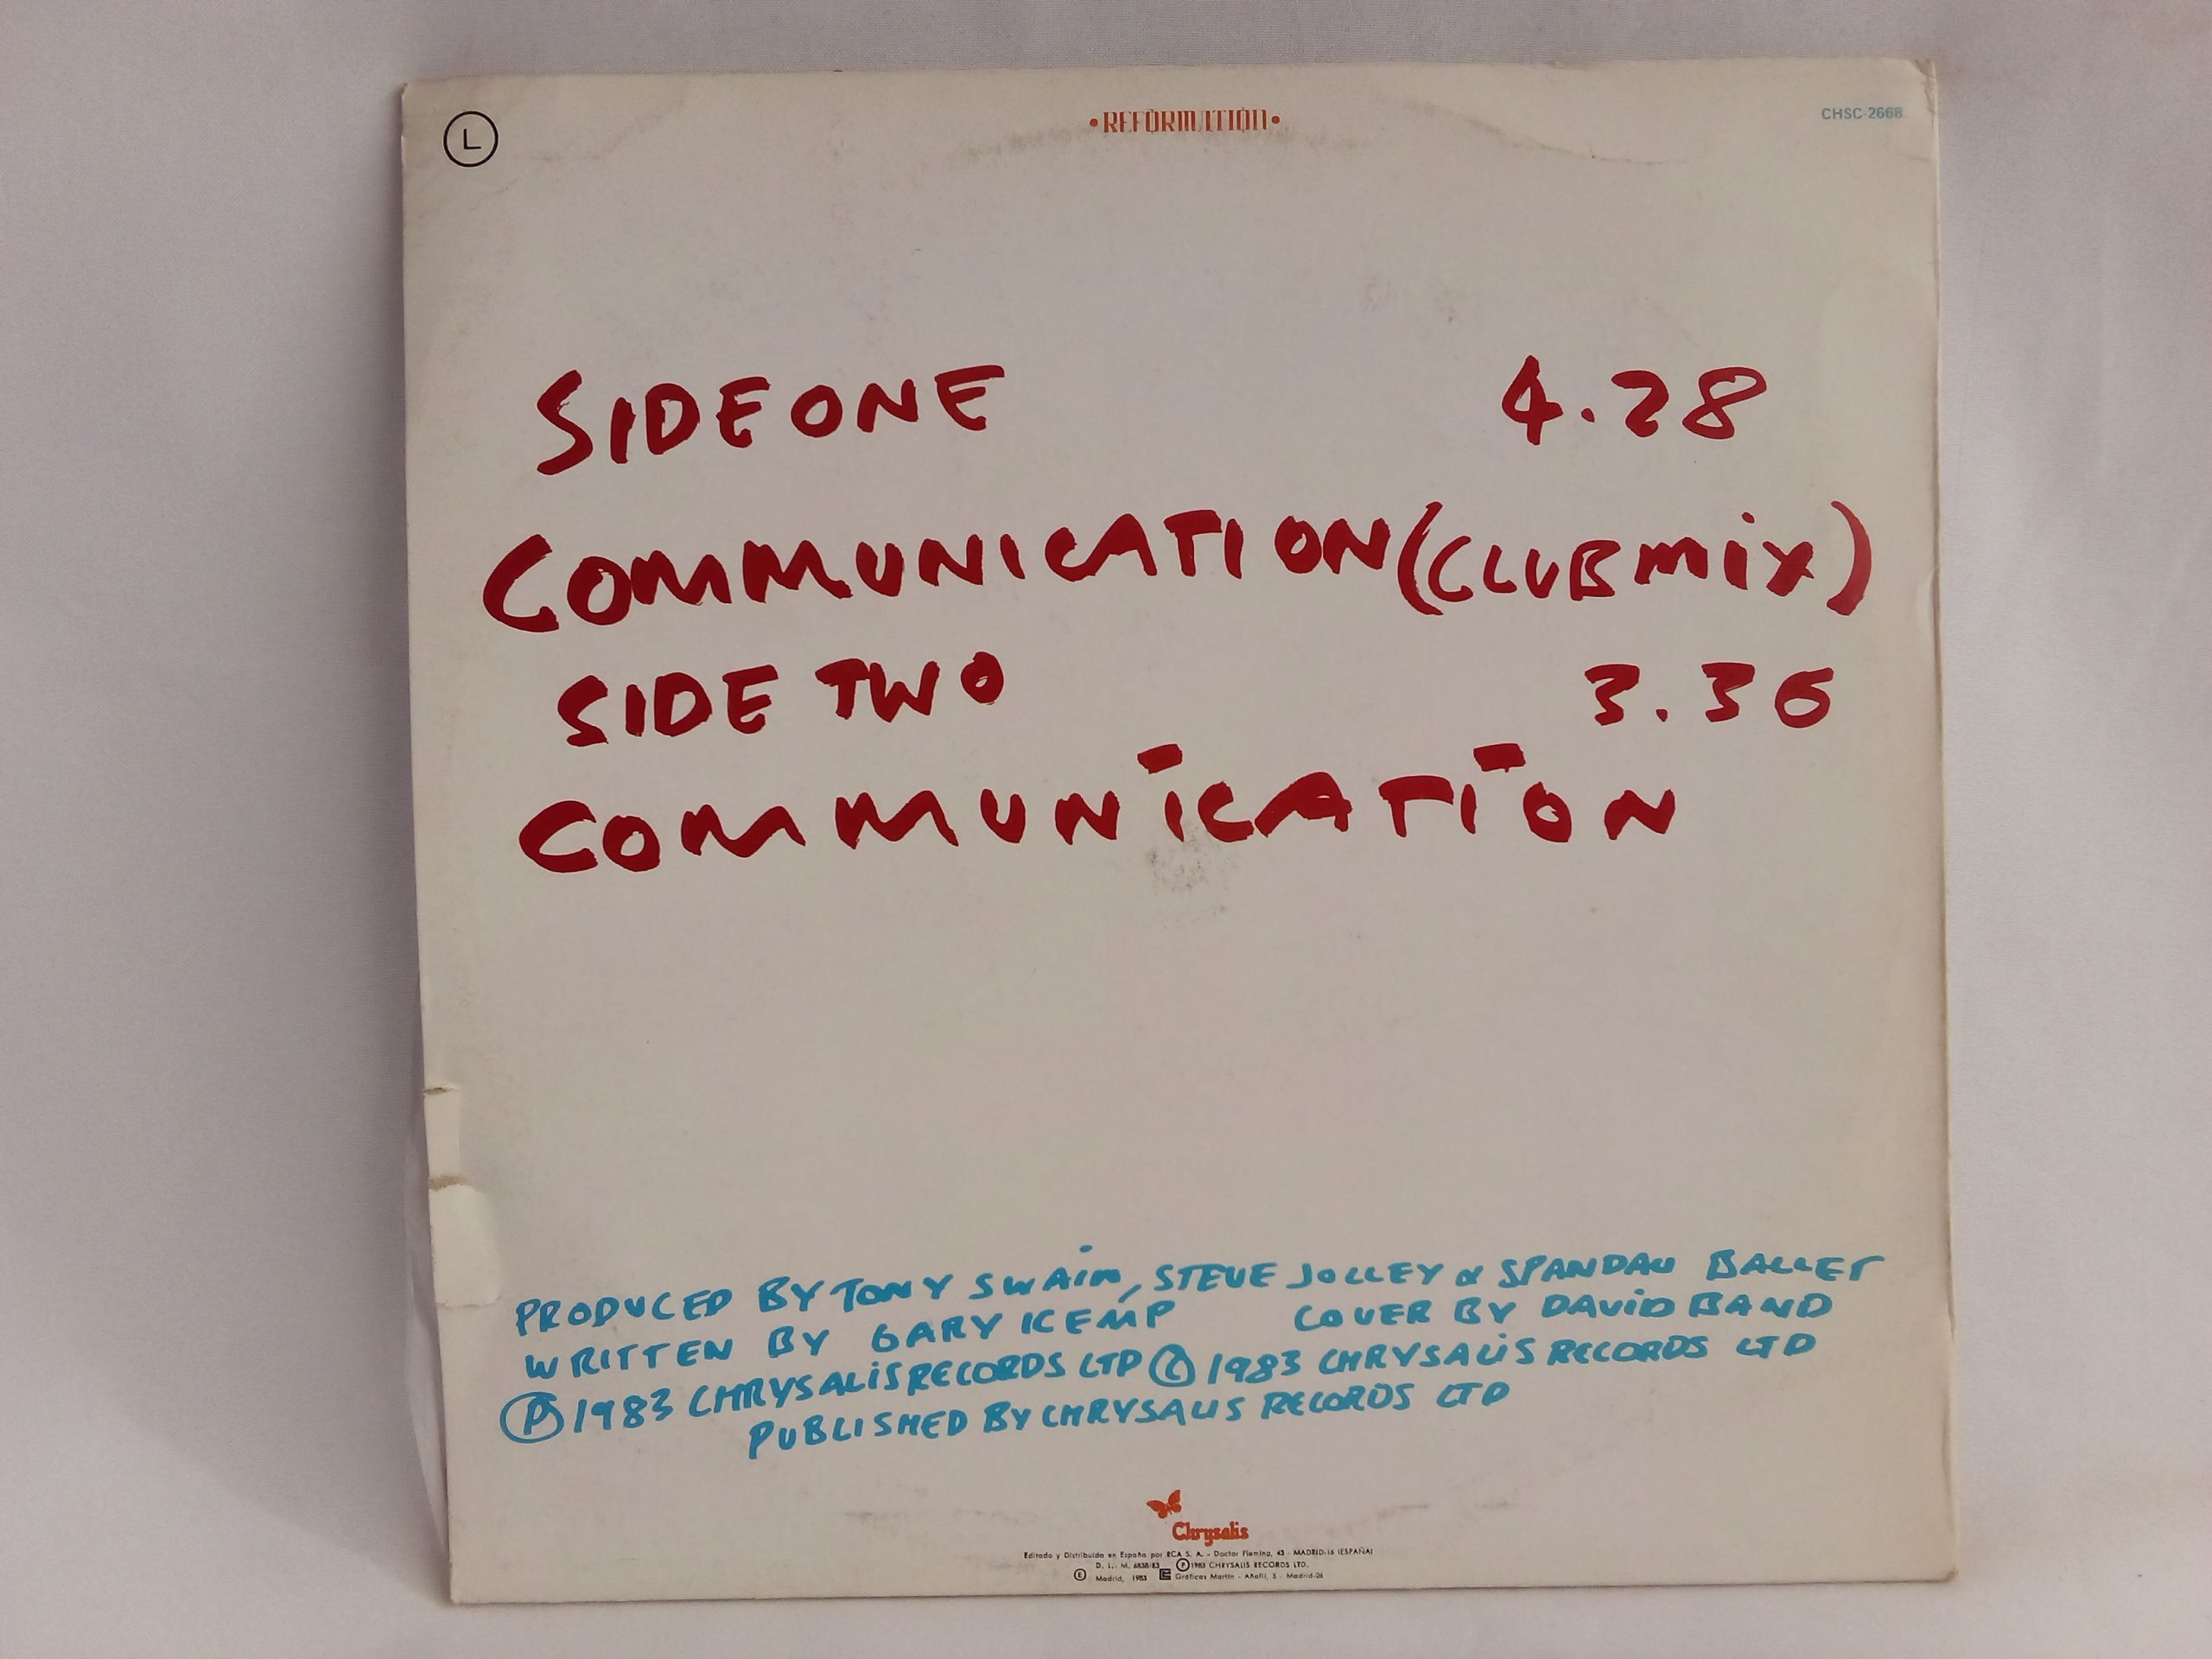 L
•REFORMATION•
CHSC-2668
SIDE ONE 4.28
COMMUNICATION (CLUB MIX)
SIDE TWO 3.36
COMMUNICATION
PRODUCED BY TONY SWAIN, STEVE JOLLEY & SPANDAU BALLET
WRITTEN BY GARY KEMP COVER BY DAVID BAND
Ⓟ 1983 CHRYSALIS RECORDS LTD © 1983 CHRYSALIS RECORDS LTD
PUBLISHED BY CHRYSALIS RECORDS LTD
Chrysalis
Editado y Distribuido en España por RCA S. A. - Doctor Fleming, 43 - MADRID-16 (ESPAÑA)
D. L.: M. 6838/83 Ⓟ 1983 CHRYSALIS RECORDS LTD.
Ⓔ Madrid, 1983 Gráficas Martín - Añafil, 5 - Madrid-26